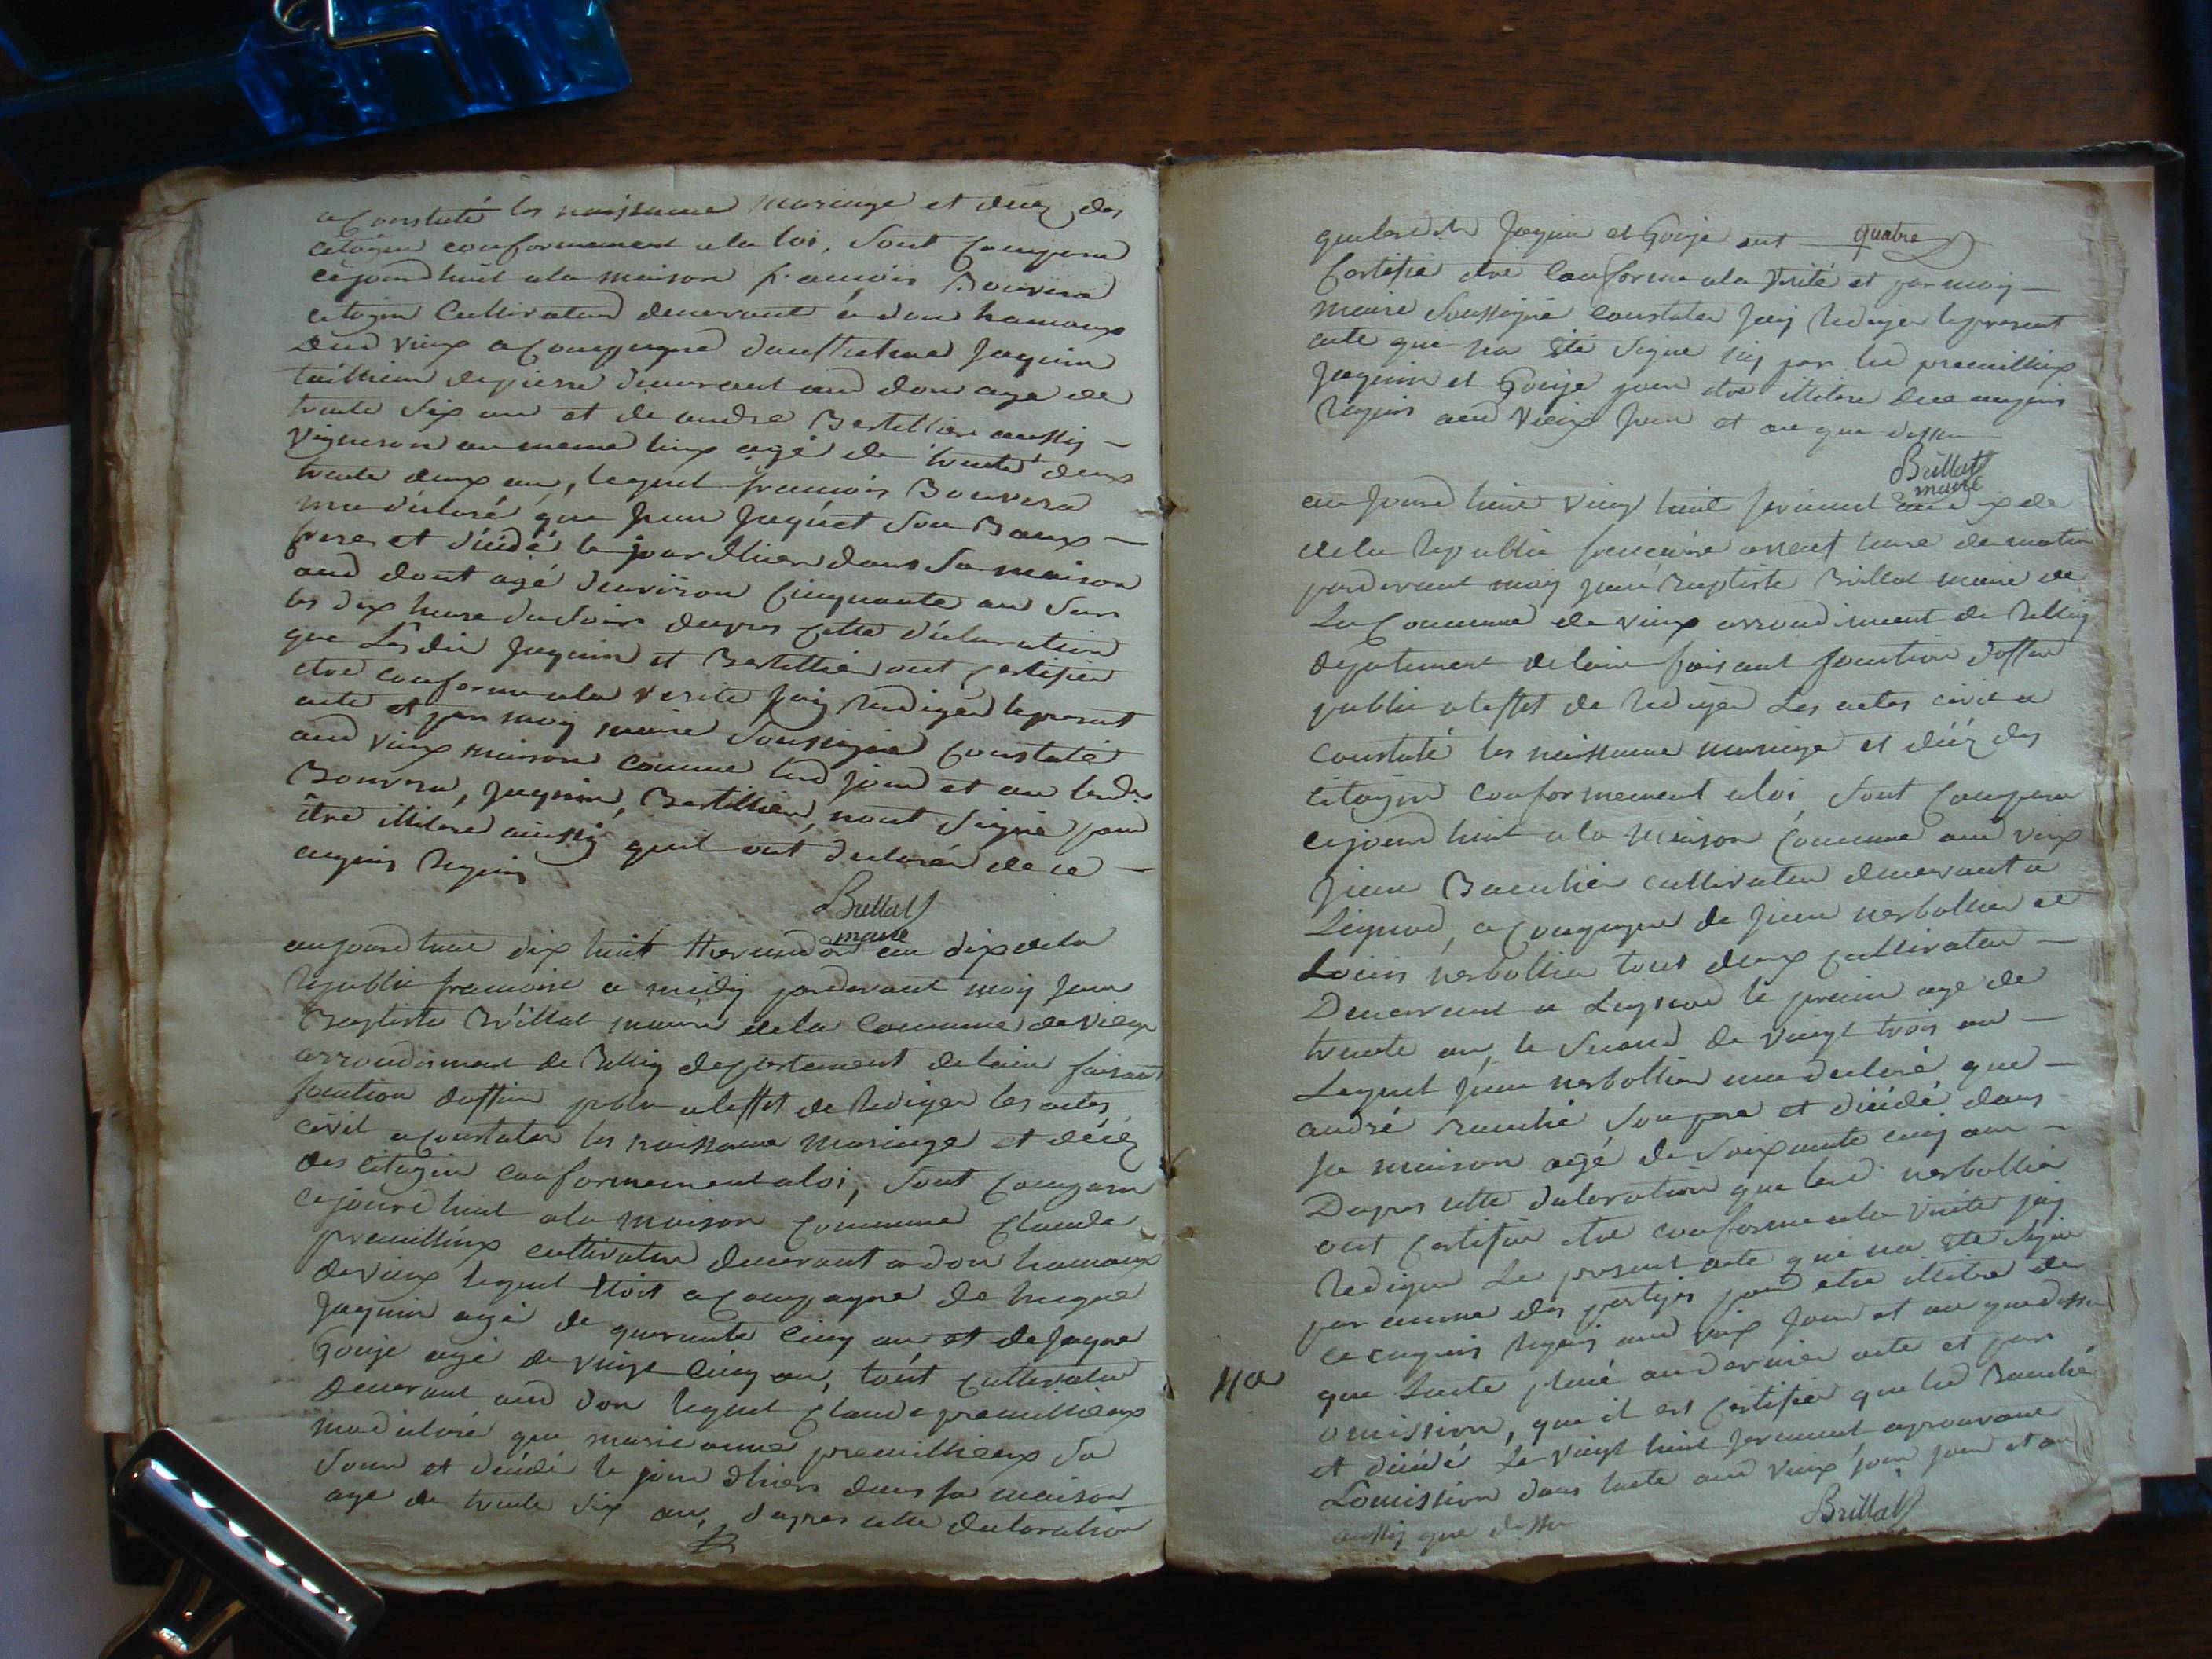 a Constaté les naissance mariage et decez des
citoyen conformement ala loi, sont Comparu
cejourdhuit ala maison francois Bouvera
citoyen Cultivateur demeurant a don hamaux
dud vieux acompagné Jaquin
tallieur depierre demeurant aud don age de
trente six an et de andre Bertellier aussy
vigneron au meme lieux agé de trente deux
trente deux an, lequel francois Bouvera
ma déclaré que Jean Jaquet son Baux
frere et décédé le jour dhier dans sa maison
aud dont agé denviron Cinquante an sur
les dix heure du soir depres cette déclaration
que Lesdit Jaquin et Bertellier ont certifier
etre conforme ala verite jay redigér lepresent
acte et par moy maire soussigné constaté
aud vieux maison comune led jour et an lesd
Bouvera, Jaquin, Bertellier, nont signé pour
être illitere aussy quil ont declarér de ce
enquis requis
Brillat
maire
aujourdhuit dix huit thermidor an dix dela
republi francoise a midy pardevant moy Jean
Baptiste Brillat maire dela Commune de vieux
arrondisment de Belley departement delain faisant
fonction doffier publi aleffet de rediger les actes
civil a constater les naissance mariage et décéz
des citoyen conformement aloi, sont comparu
cejourdhuit ala maison commune Claude
premillieux cultivateur demeurant a don hamaux
devieux lequel etoit acompagné de hugue
Jaquin agé de quarante cinq an et de Jaque
Gouje agé de vingt cinq an, tout cultivateur
demeurant aud don lequel Claude premillieux
ma déclaré que marie anne premillieux sa
soeur et décédé le jour dhiers dans sa maison
age de trente six an, dapres cette declaration
B
quelesdit Jaquin et Gouje ont quatre
Certifié etre conforme ala vérité et par moy
maire soussigné constater jay rediger lepresent
acte que na été signé ny par led premillieux
Jaquin et Gouje pour etre illitere de ce enquis
requis aud vieux jour et an que dessu
Brillat
maire
au jourdhuit vingt huit an dix de
dela republi francoise aneuf heure du matin
pardevant moy Jean Baptiste Brillat maire de
La Commune de vieux arrondiment de Belley
depatement delain faisant fonction doffier
publi aleffet de rediger Les actes civil a
constaté les naissance mariage et décéz des
citoyen conformement aloi, sont comparu
cejourdhuit ala maison Commune aud vieux
Jean Bauchier cultivateur demeurant a
Leignod, acompagné de Jean nerbollier et
Louis nerbollier tout deux cultivateur
Demeurant a Leignod le premier age de
trente an, le second de vingt trois an
Lequel Jean nerbollier ma declaré que
andré Bauché son pere et décédé dans
sa maison agé de soixante cinq an
Dapres cette declaration que lesd nerbollier
ont certifier etre conforme ala vérité jay
rediger Le present acte que na été signé
par aucune des partyes pour etre illitere de
ce enquis requis aud vieux jour et an quedessu
Na que suite placé audernier acte et par
omission, que il est certifier que led Bauché
et décédé Le vingt huit aprouvant
Lomission dans lacte aud vieux jour et an
aussy que dessu
Brillat